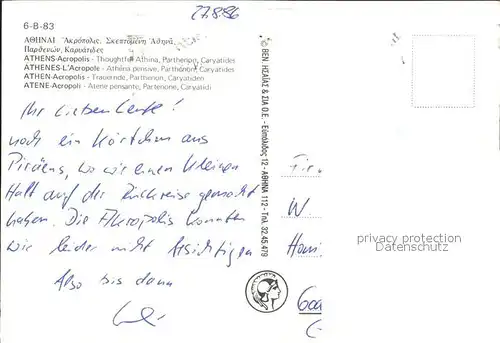 27.8.86
6-B-83
ΑΘΗΝΑΙ Ἀκρόπολις. Σκεπτομένη Ἀθηνᾶ,
Παρθενών, Καρυάτιδες
ATHENS-Acropolis - Thoughtful Athina, Parthenon, Caryatides
ATHENES-L'Acropole - Athéna pensive, Parthénon, Caryatides
ATHEN-Acropolis - Trauernde, Parthenon, Caryatiden
ATENE-Acropoli - Atene pensante, Partenone, Cariatidi
Ihr lieben Leute!
noch ein Kärtchen aus
Piräus, wo wir einen kleinen
Halt auf der Rückreise gemacht
haben. Die Akropolis konnten
wir leider nicht besichtigen
Also bis dann
© ΒΕΝ. ΗΣΑΪΑΣ & ΣΙΑ Ο.Ε. - Εὐπόλιδος 12 - ΑΘΗΝΑ 112 - Τηλ. 32.45.479
W.
privacy protection
Datenschutz